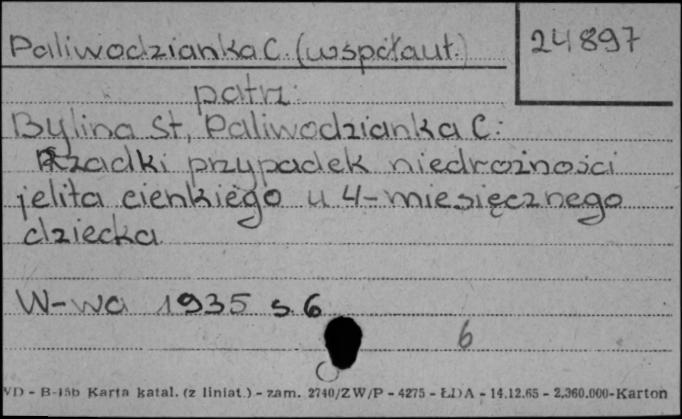 Paliwodzianka C. (współaut.)
24897
patrz:
Bylina St, Paliwodzianka C:
Rzadki przypadek niedrożności
jelita cienkiego u 4-miesięcznego
dziecka
W-wa 1935 s. 6
6
VD - B-15b Karta katal. (z liniat.) - zam. 2740/ZW/P - 4275 - ŁDA - 14.12.65 - 2.360.000-Karton